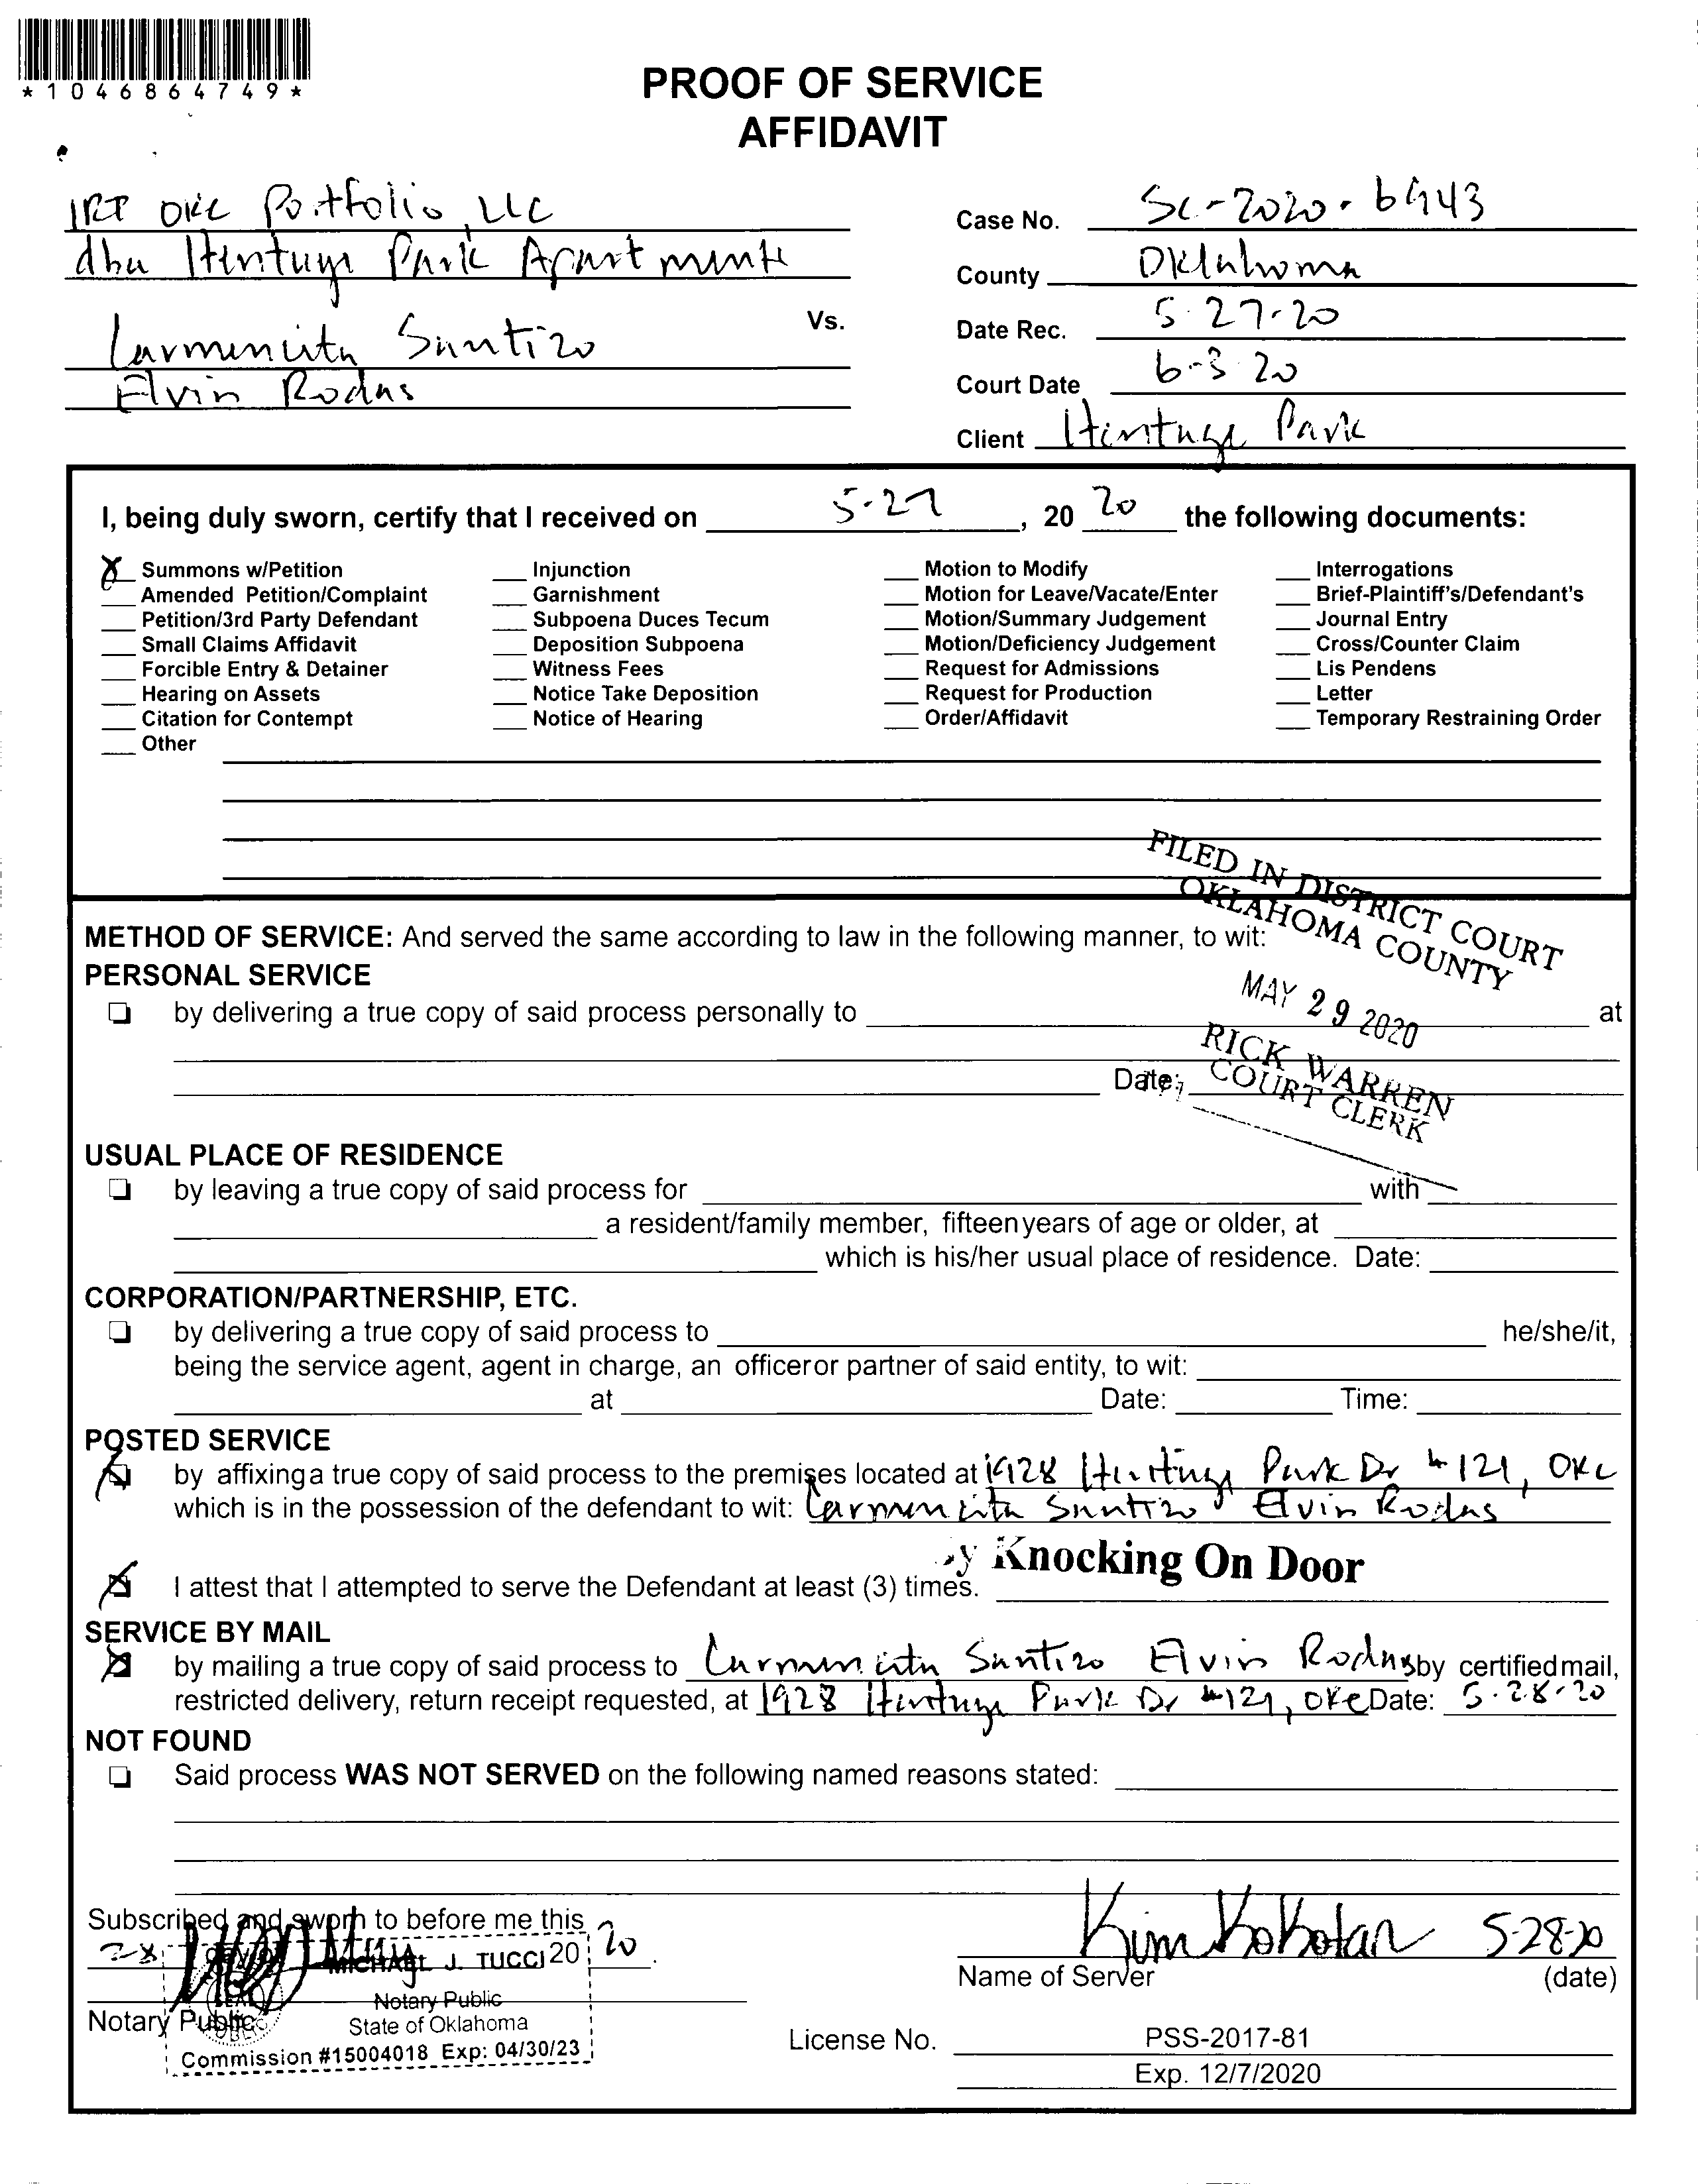 *1046864749*
PROOF OF SERVICE
AFFIDAVIT
IRT OKC Portfolio, LLC
dba Heritage Park Apartments
Vs.
Carmencita Suntizo
Elvin Rodas
Case No. SC-2020-6943
County Oklahoma
Date Rec. 5-27-20
Court Date 6-3-20
Client Heritage Park
I, being duly sworn, certify that I received on 5-27, 20 20 the following documents:
X Summons w/Petition
Amended Petition/Complaint
Petition/3rd Party Defendant
Small Claims Affidavit
Forcible Entry & Detainer
Hearing on Assets
Citation for Contempt
Other
Injunction
Garnishment
Subpoena Duces Tecum
Deposition Subpoena
Witness Fees
Notice Take Deposition
Notice of Hearing
Motion to Modify
Motion for Leave/Vacate/Enter
Motion/Summary Judgement
Motion/Deficiency Judgement
Request for Admissions
Request for Production
Order/Affidavit
Interrogations
Brief-Plaintiff's/Defendant's
Journal Entry
Cross/Counter Claim
Lis Pendens
Letter
Temporary Restraining Order
FILED IN DISTRICT COURT
OKLAHOMA COUNTY
MAY 29 2020
RICK WARREN
COURT CLERK
METHOD OF SERVICE: And served the same according to law in the following manner, to wit:
PERSONAL SERVICE
by delivering a true copy of said process personally to at
Date:
USUAL PLACE OF RESIDENCE
by leaving a true copy of said process for with
a resident/family member, fifteen years of age or older, at
which is his/her usual place of residence. Date:
CORPORATION/PARTNERSHIP, ETC.
by delivering a true copy of said process to he/she/it,
being the service agent, agent in charge, an officer or partner of said entity, to wit:
at Date: Time:
POSTED SERVICE
by affixing a true copy of said process to the premises located at 1928 Heritage Park Dr #121, OKC
which is in the possession of the defendant to wit: Carmencita Suntizo Elvin Rodas
I attest that I attempted to serve the Defendant at least (3) times. Knocking On Door
SERVICE BY MAIL
by mailing a true copy of said process to Carmencita Suntizo Elvin Rodas by certified mail,
restricted delivery, return receipt requested, at 1928 Heritage Park Dr #121, OKC Date: 5-28-20
NOT FOUND
Said process WAS NOT SERVED on the following named reasons stated:
Subscribed and sworn to before me this
28 day of 20 20.
MICHAEL J. TUCCI
Notary Public
State of Oklahoma
Commission #15004018 Exp: 04/30/23
Notary Public
Kim Kokotan 5-28-20
Name of Server (date)
License No. PSS-2017-81
Exp. 12/7/2020